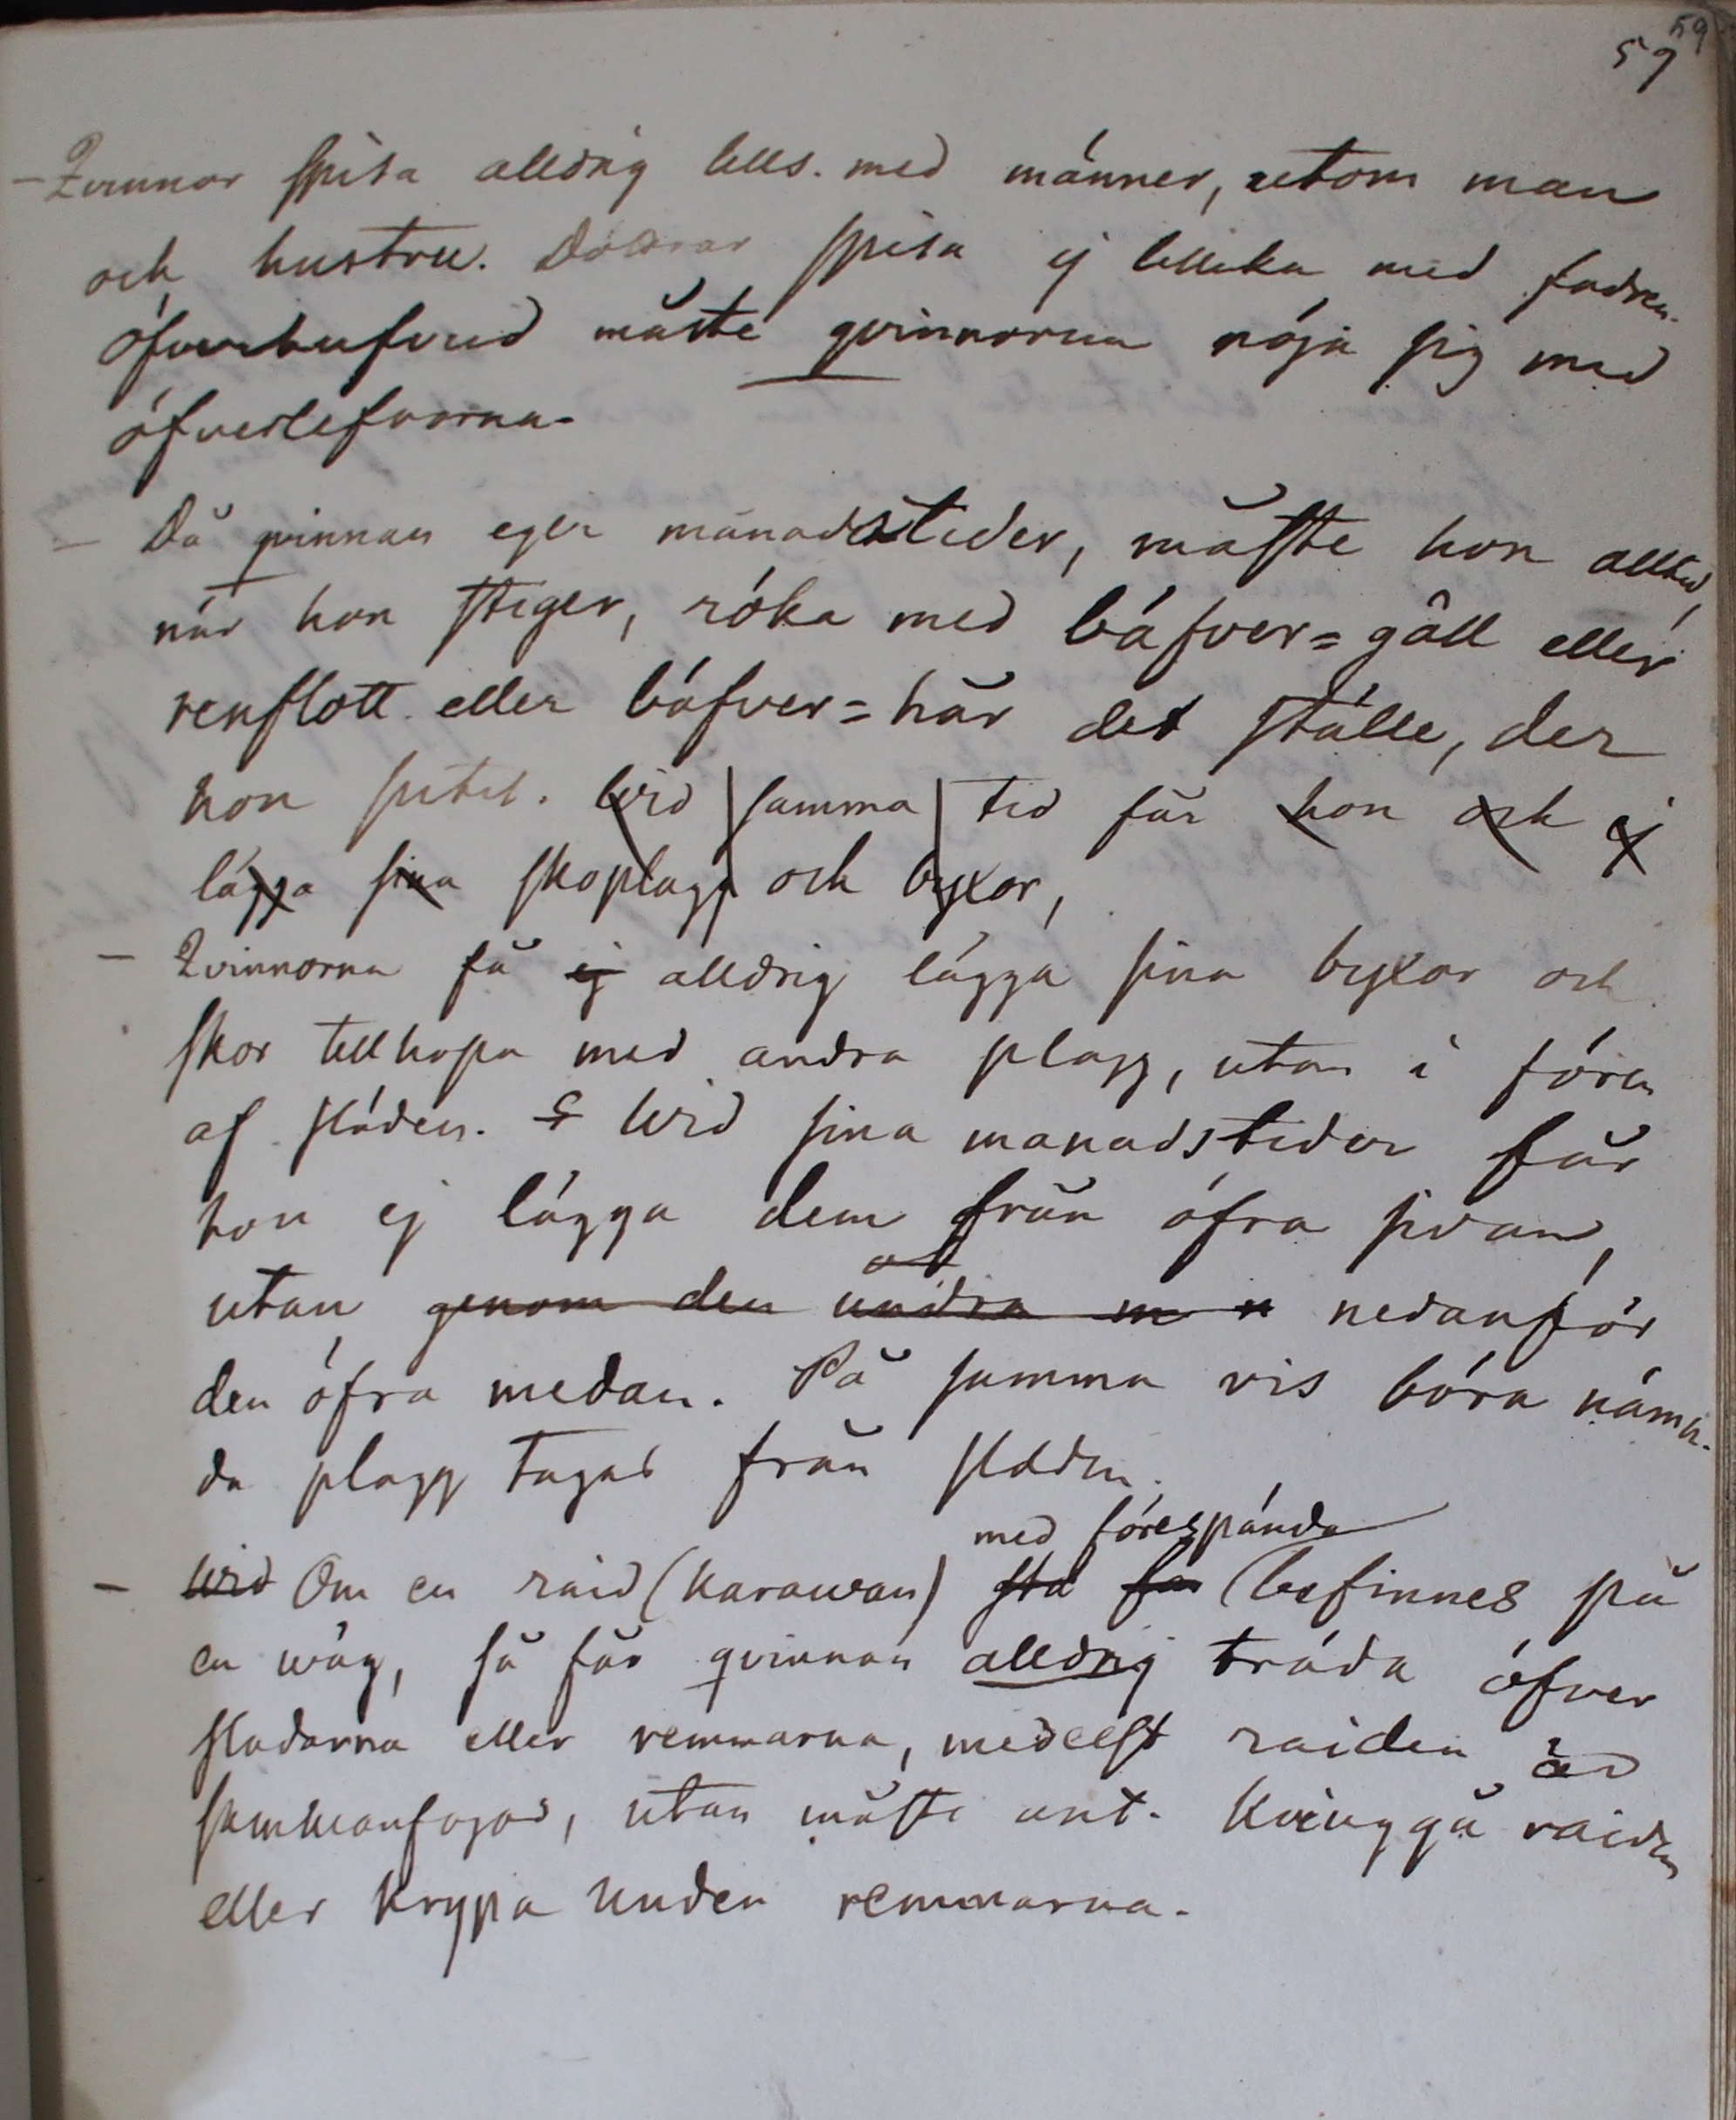 59
59
– Qvinnor spisa alldrig tills. med männer, utom man
och hustru. Döttrar spisa ej tillika med fadren.
öfverhufvud måste qvinnorna nöja sig med
öfverlefvorna.
– Då qvinnan eger månadstider, måste hon alltid,
när hon stiger, röka med bäfver=gäll eller
renflott eller bäfver=hår det ställe, der
hon sutit. Wid samma tid får hon och ej
lägga sina skoplagg och byxor,
– Qvinnorna få ej alldrig lägga sina byxor och
skor tillhopa med andra plagg, utan i fören
af släden. Wid sina manadstider får
hon ej lägga dem från öfra sidan,
utan genom den undra nedanför
den öfra medan. På samma vis böra nämn-
da plagg tagas från släden.
med förespända
– Wid Om en raid (karawan) stå befinnes på
en wäg, så får qvinnan alldrig träda öfver
slädarna eller remmarna, medelst raiden är
sammanfogad, utan måste ant. kringgå raiden
eller krypa under remmarna.